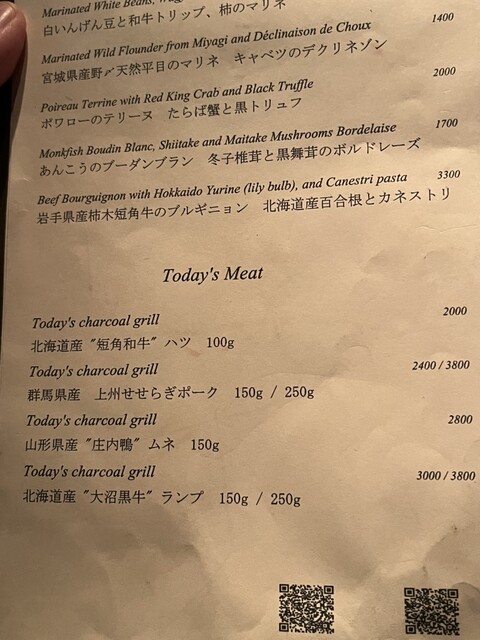 Marinated White Beans,
白いんげん豆と和牛トリップ、柿のマリネ
Marinated Wild Flounder from Miyagi and Déclinaison de Choux 1400
宮城県産野〆天然平目のマリネ キャベツのデクリネゾン
Poireau Terrine with Red King Crab and Black Truffle 2000
ポワローのテリーヌ たらば蟹と黒トリュフ
Monkfish Boudin Blanc, Shiitake and Maitake Mushrooms Bordelaise 1700
あんこうのブーダンブラン 冬子椎茸と黒舞茸のボルドレーズ
Beef Bourguignon with Hokkaido Yurine (lily bulb), and Canestri pasta 3300
岩手県産柿木短角牛のブルギニョン 北海道産百合根とカネストリ
Today's Meat
Today's charcoal grill 2000
北海道産 "短角和牛" ハツ 100g
Today's charcoal grill 2400 / 3800
群馬県産 上州せせらぎポーク 150g / 250g
Today's charcoal grill 2800
山形県産 "庄内鴨" ムネ 150g
Today's charcoal grill 3000 / 3800
北海道産 "大沼黒牛" ランプ 150g / 250g